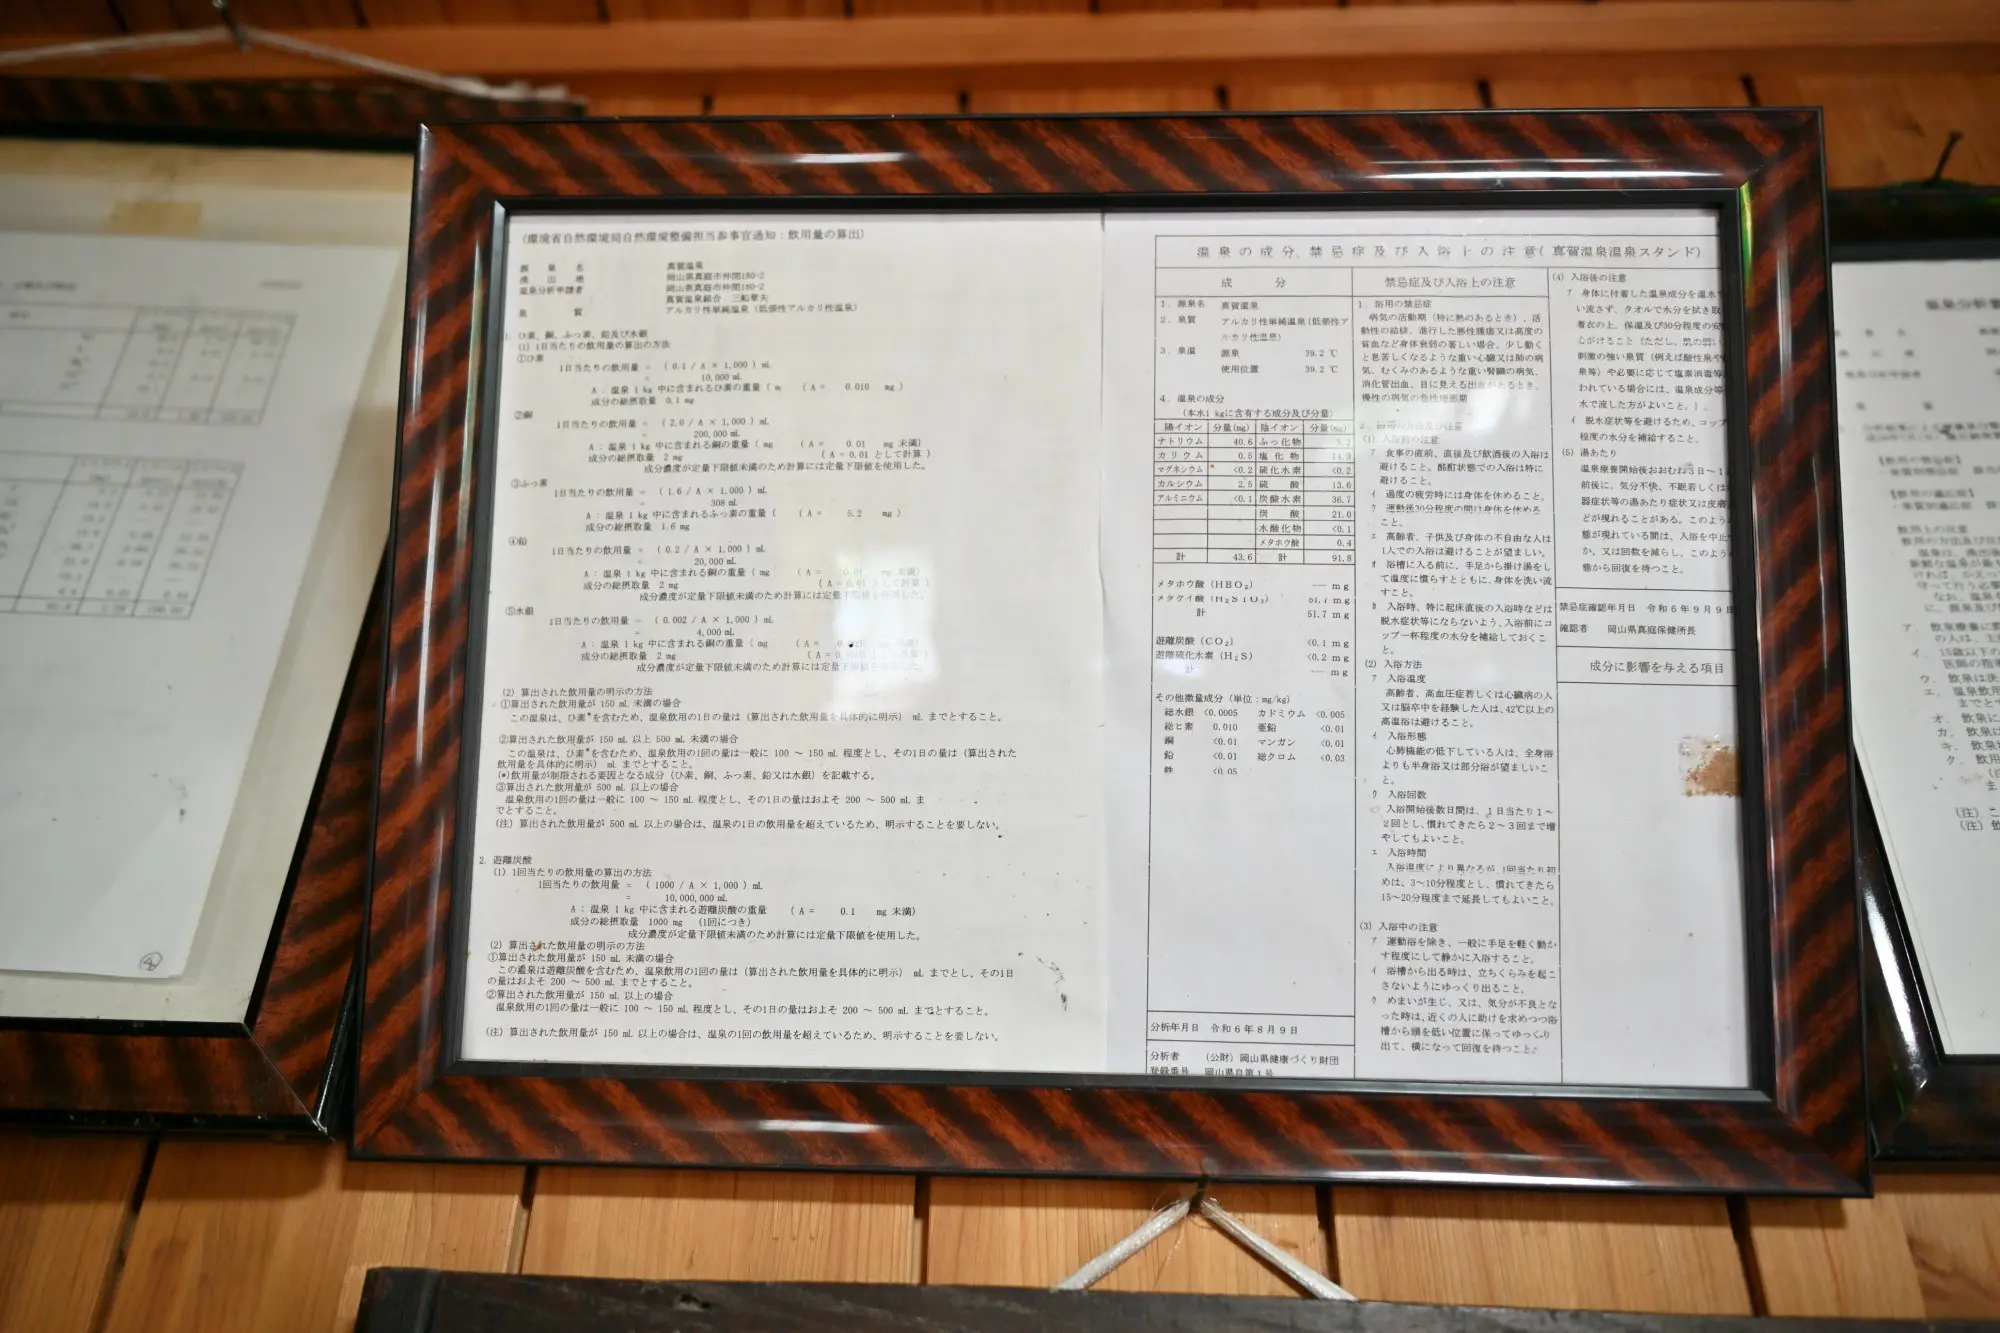 (環境省自然環境局自然環境整備担当参事官通知：飲用量の算出)
源泉名 真賀温泉
湧出地 岡山県真庭市仲間180-2
温泉分析申請者 岡山県真庭市仲間180-2
真賀温泉組合
泉質 アルカリ性単純温泉（低張性アルカリ性温泉）
1. ひ素、銅、ふっ素、鉛及び水銀
(1) 1日当たりの飲用量の算出の方法
①ひ素
1日当たりの飲用量 = ( 0.1 / A × 1,000 ) mL
= 10,000 mL
A : 温泉 1 kg 中に含まれるひ素の重量 ( A = 0.010 mg )
成分の総摂取量 0.1 mg
②銅
1日当たりの飲用量 = ( 2.0 / A × 1,000 ) mL
= 200,000 mL
A : 温泉 1 kg 中に含まれる銅の重量 ( mg ( A = 0.01 mg 未満)
成分の総摂取量 2 mg ( A = 0.01 として計算 )
成分濃度が定量下限値未満のため計算には定量下限値を使用した。
③ふっ素
1日当たりの飲用量 = ( 1.6 / A × 1,000 ) mL
= 308 mL
A : 温泉 1 kg 中に含まれるふっ素の重量 ( ( A = 5.2 mg )
成分の総摂取量 1.6 mg
④鉛
1日当たりの飲用量 = ( 0.2 / A × 1,000 ) mL
= 20,000 mL
A : 温泉 1 kg 中に含まれる銅の重量 ( mg ( A = 0.01 mg 未満)
成分の総摂取量 2 mg ( A = 0.01 として計算 )
成分濃度が定量下限値未満のため計算には定量下限値を使用した。
⑤水銀
1日当たりの飲用量 = ( 0.002 / A × 1,000 ) mL
= 4,000 mL
A : 温泉 1 kg 中に含まれる銅の重量 ( mg ( A =
成分の総摂取量 2 mg ( A =
成分濃度が定量下限値未満のため計算には定量
(2) 算出された飲用量の明示の方法
①算出された飲用量が 150 mL 未満の場合
この温泉は、ひ素*を含むため、温泉飲用の1日の量は（算出された飲用量を具体的に明示） mL までとすること。
②算出された飲用量が 150 mL 以上 500 mL 未満の場合
この温泉は、ひ素*を含むため、温泉飲用の1回の量は一般に 100 ～ 150 mL 程度とし、その1日の量は（算出された
飲用量を具体的に明示） mL までとすること。
(*)飲用量が制限される要因となる成分（ひ素、銅、ふっ素、鉛又は水銀）を記載する。
③算出された飲用量が 500 mL 以上の場合
温泉飲用の1回の量は一般に 100 ～ 150 mL 程度とし、その1日の量はおよそ 200 ～ 500 mL ま
でとすること。
(注) 算出された飲用量が 500 mL 以上の場合は、温泉の1日の飲用量を超えているため、明示することを要しない。
2. 遊離炭酸
(1) 1回当たりの飲用量の算出の方法
1回当たりの飲用量 = ( 1000 / A × 1,000 ) mL
= 10,000,000 mL
A : 温泉 1 kg 中に含まれる遊離炭酸の重量 ( A = 0.1 mg 未満)
成分の総摂取量 1000 mg (1回につき)
成分濃度が定量下限値未満のため計算には定量下限値を使用した。
(2) 算出された飲用量の明示の方法
①算出された飲用量が 150 mL 未満の場合
この温泉は遊離炭酸を含むため、温泉飲用の1回の量は（算出された飲用量を具体的に明示） mL までとし、その1日
の量はおよそ 200 ～ 500 mL までとすること。
②算出された飲用量が 150 mL 以上の場合
温泉飲用の1回の量は一般に 100 ～ 150 mL 程度とし、その1日の量はおよそ 200 ～ 500 mL までとすること。
(注) 算出された飲用量が 150 mL 以上の場合は、温泉の1回の飲用量を超えているため、明示することを要しない。
温泉の成分、禁忌症及び入浴上の注意（真賀温泉温泉スタンド）
成分
1. 源泉名 真賀温泉
2. 泉質 アルカリ性単純温泉（低張性ア
ルカリ性温泉）
3. 泉温 源泉 39.2 ℃
使用位置 39.2 ℃
4. 温泉の成分
(本水1 kgに含有する成分及び分量)
陽イオン 分量(mg) 陰イオン 分量(mg)
ナトリウム 40.6 ふっ化物 5.2
カリウム 0.5 塩化物 14.9
マグネシウム <0.2 硫化水素 <0.2
カルシウム 2.5 硫酸 13.6
アルミニウム <0.1 炭酸水素 36.7
炭酸 21.0
水酸化物 <0.1
メタホウ酸 0.4
計 43.6 計 91.8
メタホウ酸 (HBO₂) ― mg
メタケイ酸 (H₂SiO₃) 51.7 mg
計 51.7 mg
遊離炭酸 (CO₂) <0.1 mg
遊離硫化水素 (H₂S) <0.2 mg
計 ― mg
その他微量成分 (単位：mg/kg)
総水銀 <0.0005 カドミウム <0.005
総ヒ素 0.010 亜鉛 <0.01
銅 <0.01 マンガン <0.01
鉛 <0.01 総クロム <0.03
鉄 <0.05
分析年月日 令和6年8月9日
分析者 (公財) 岡山県健康づくり財団
登録番号 岡山県自第1号
禁忌症及び入浴上の注意
1. 浴用の禁忌症
病気の活動期（特に熱のあるとき）、活
動性の結核、進行した悪性腫瘍又は高度の
貧血など身体衰弱の著しい場合、少し動く
と息苦しくなるような重い心臓又は肺の病
気、むくみのあるような重い腎臓の病気、
消化管出血、目に見える出血があるとき、
慢性の病気の急性増悪期
2. 浴用の方法及び注意
(1) 入浴前の注意
ア 食事の直前、直後及び飲酒後の入浴は
避けること。酩酊状態での入浴は特に
避けること。
イ 過度の疲労時には身体を休めること。
ウ 運動後30分程度の間は身体を休める
こと。
エ 高齢者、子供及び身体の不自由な人は
1人での入浴は避けることが望ましい。
オ 浴槽に入る前に、手足から掛け湯をし
て温度に慣らすとともに、身体を洗い流
すこと。
カ 入浴時、特に起床直後の入浴時などは
脱水症状等にならないよう、入浴前にコ
ップ一杯程度の水分を補給しておくこ
と。
(2) 入浴方法
ア 入浴温度
高齢者、高血圧症若しくは心臓病の人
又は脳卒中を経験した人は、42℃以上の
高温浴は避けること。
イ 入浴形態
心肺機能の低下している人は、全身浴
よりも半身浴又は部分浴が望ましいこ
と。
ウ 入浴回数
入浴開始後数日間は、1日当たり1～
2回とし、慣れてきたら2～3回まで増
やしてもよいこと。
エ 入浴時間
入浴温度により異なるが、1回当たり初
めは、3～10分程度とし、慣れてきたら
15～20分程度まで延長してもよいこと。
(3) 入浴中の注意
ア 運動浴を除き、一般に手足を軽く動か
す程度にして静かに入浴すること。
イ 浴槽から出る時は、立ちくらみを起こ
さないようにゆっくり出ること。
ウ めまいが生じ、又は、気分が不良とな
った時は、近くの人に助けを求めつつ浴
槽から頭を低い位置に保ってゆっくり
出て、横になって回復を待つこと。
(4) 入浴後の注意
ア 身体に付着した温泉成分を温水
い流さず、タオルで水分を拭き取
着衣の上、保温及び30分程度の安
心がけること（ただし、肌の弱い
刺激の強い泉質（例えば酸性泉や
泉等）や必要に応じて塩素消毒等
われている場合には、温泉成分等
水で流した方がよいこと。）。
イ 脱水症状等を避けるため、コップ
程度の水分を補給すること。
(5) 湯あたり
温泉療養開始後おおむね3日～1
前後に、気分不快、不眠若しくは
器症状等の湯あたり症状又は皮膚
どが現れることがある。このよう
態が現れている間は、入浴を中止
か、又は回数を減らし、このよう
態から回復を待つこと。
禁忌症確認年月日 令和6年9月9日
確認者 岡山県真庭保健所長
成分に影響を与える項目